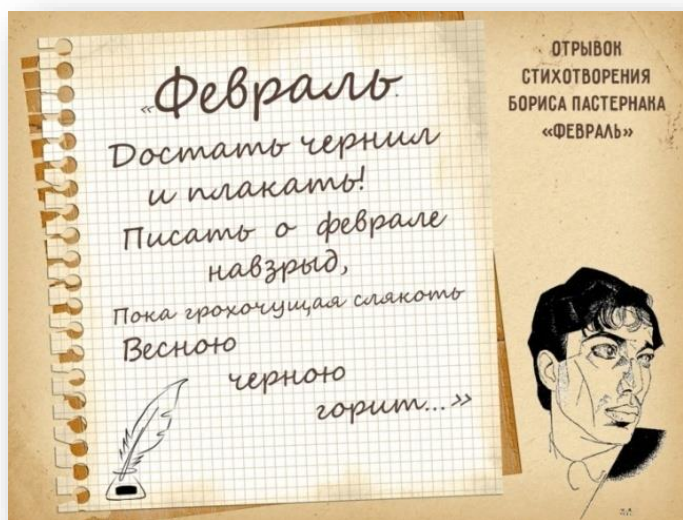 «Февраль.
Достать чернил
и плакать!
Писать о феврале
навзрыд,
Пока грохочущая слякоть
Весною
черною
горит...»
ОТРЫВОК
СТИХОТВОРЕНИЯ
БОРИСА ПАСТЕРНАКА
«ФЕВРАЛЬ»